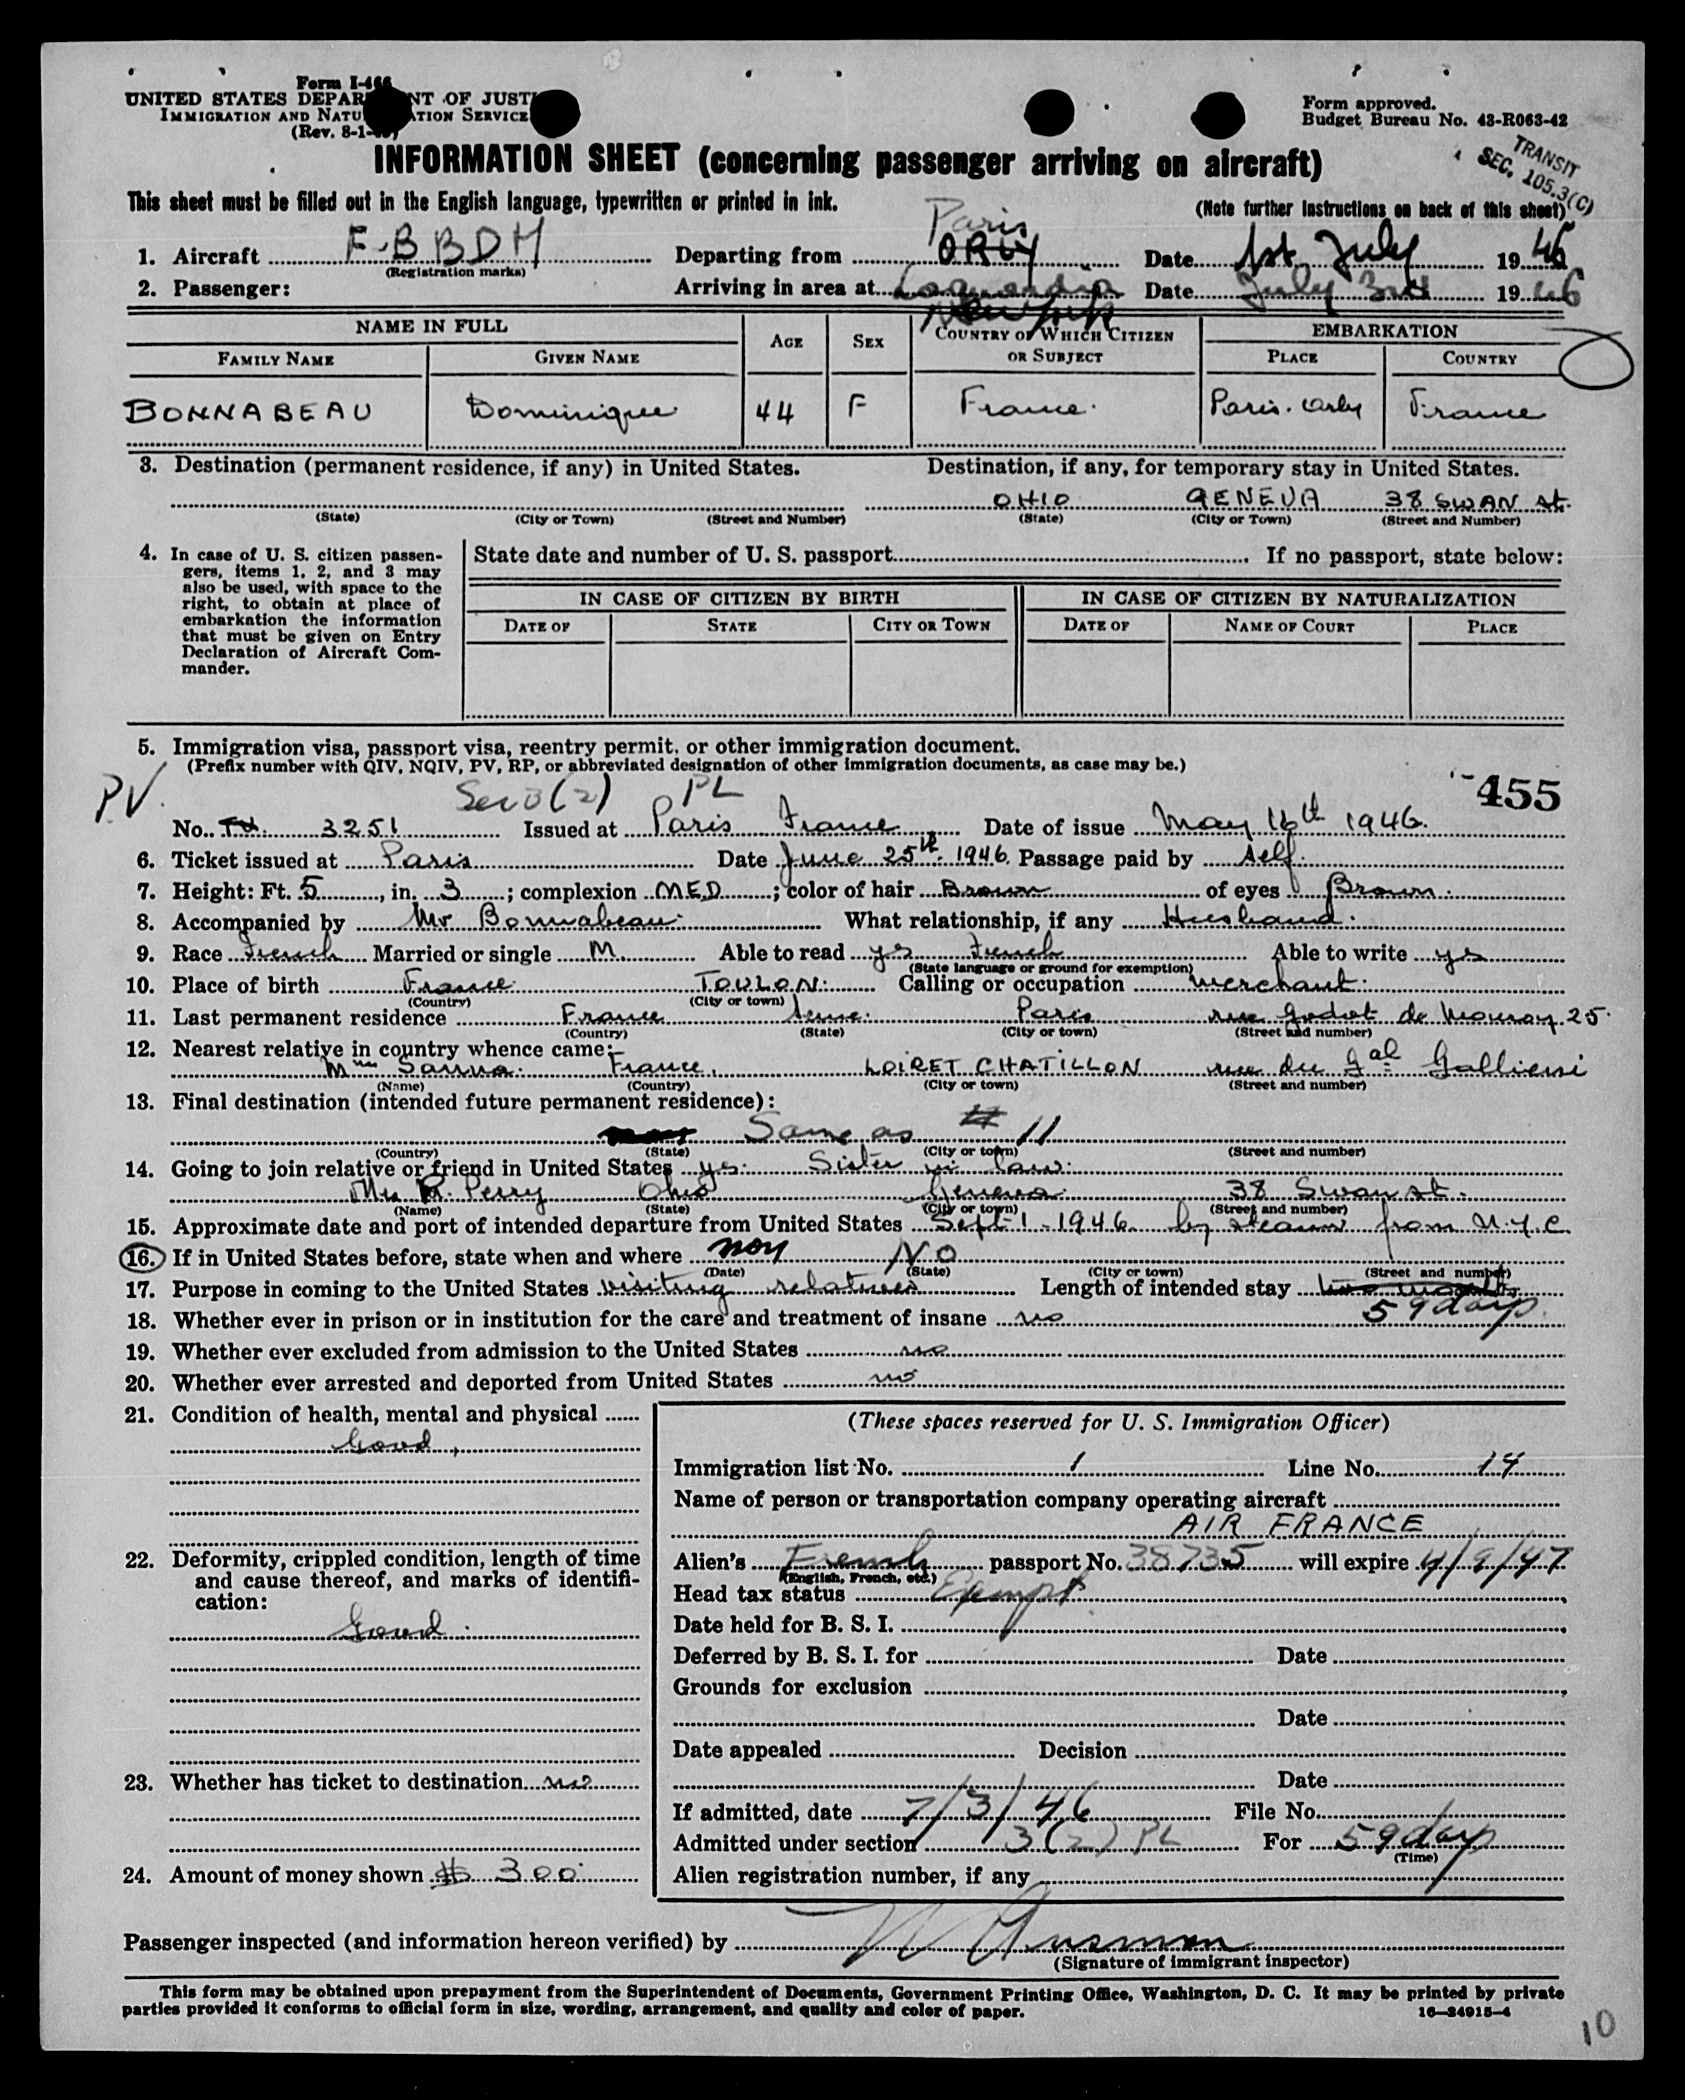 Form I-466
UNITED STATES DEPARTMENT OF JUSTICE
IMMIGRATION AND NATURALIZATION SERVICE
(Rev. 8-1-
Form approved.
Budget Bureau No. 43-R063-42
TRANSIT
SEC. 105.3(C)
INFORMATION SHEET (concerning passenger arriving on aircraft)
This sheet must be filled out in the English language, typewritten or printed in ink.
(Note further instructions on back of this sheet)
Paris
1. Aircraft F-BBDM Departing from ORLY Date 1st July 1946
(Registration marks)
2. Passenger: Arriving in area at Laguardia Date July 3rd 1946
New York
NAME IN FULL AGE SEX COUNTRY OF WHICH CITIZEN OR SUBJECT EMBARKATION
FAMILY NAME GIVEN NAME PLACE COUNTRY
BONNABEAU Dominique 44 F France. Paris. Orly France
3. Destination (permanent residence, if any) in United States. Destination, if any, for temporary stay in United States.
OHIO GENEVA 38 SWAN st.
(State) (City or Town) (Street and Number) (State) (City or Town) (Street and Number)
4. In case of U. S. citizen passen-
gers, items 1, 2, and 3 may
also be used, with space to the
right, to obtain at place of
embarkation the information
that must be given on Entry
Declaration of Aircraft Com-
mander.
State date and number of U. S. passport If no passport, state below:
IN CASE OF CITIZEN BY BIRTH IN CASE OF CITIZEN BY NATURALIZATION
DATE OF STATE CITY OR TOWN DATE OF NAME OF COURT PLACE
5. Immigration visa, passport visa, reentry permit, or other immigration document.
(Prefix number with QIV, NQIV, PV, RP, or abbreviated designation of other immigration documents, as case may be.)
PV. Sec 3(2) PL 455
No. 3251 Issued at Paris France Date of issue May 16th 1946.
6. Ticket issued at Paris Date June 25th 1946 Passage paid by self.
7. Height: Ft. 5, in. 3; complexion MED; color of hair Brown of eyes Brown.
8. Accompanied by Mr Bonnabeau. What relationship, if any Husband.
9. Race French Married or single M. Able to read yes French Able to write yes
(State language or ground for exemption)
10. Place of birth France TOULON. Calling or occupation merchant.
(Country) (City or town)
11. Last permanent residence France Seine. Paris rue Godot de Mauroy. 25.
(Country) (State) (City or town) (Street and number)
12. Nearest relative in country whence came:
Mme Sanna. France. LOIRET CHATILLON rue du Gal Gallieni
(Name) (Country) (City or town) (Street and number)
13. Final destination (intended future permanent residence):
Same as # 11
(Country) (State) (City or town) (Street and number)
14. Going to join relative or friend in United States yes. Sister in law.
Mrs R. Perry Ohio Geneva. 38 Swan st.
(Name) (State) (City or town) (Street and number)
15. Approximate date and port of intended departure from United States Sept 1 - 1946 by steam from N.Y.C.
16. If in United States before, state when and where non NO
(Date) (State) (City or town) (Street and number)
17. Purpose in coming to the United States visiting relatives Length of intended stay two months
59 days
18. Whether ever in prison or in institution for the care and treatment of insane no
19. Whether ever excluded from admission to the United States no
20. Whether ever arrested and deported from United States no
21. Condition of health, mental and physical
Good,
22. Deformity, crippled condition, length of time
and cause thereof, and marks of identifi-
cation:
Good.
23. Whether has ticket to destination no
24. Amount of money shown $ 300.
(These spaces reserved for U. S. Immigration Officer)
Immigration list No. 1 Line No. 14
Name of person or transportation company operating aircraft
AIR FRANCE
Alien's French passport No. 38735 will expire 4/9/47
(English, French, etc.)
Head tax status Exempt
Date held for B. S. I.
Deferred by B. S. I. for Date
Grounds for exclusion
Date
Date appealed Decision
Date
If admitted, date 7/3/46 File No.
Admitted under section 3(2) PL For 59 days
(Time)
Alien registration number, if any
Passenger inspected (and information hereon verified) by
(Signature of immigrant inspector)
This form may be obtained upon prepayment from the Superintendent of Documents, Government Printing Office, Washington, D. C. It may be printed by private
parties provided it conforms to official form in size, wording, arrangement, and quality and color of paper. 16—24915-4
10